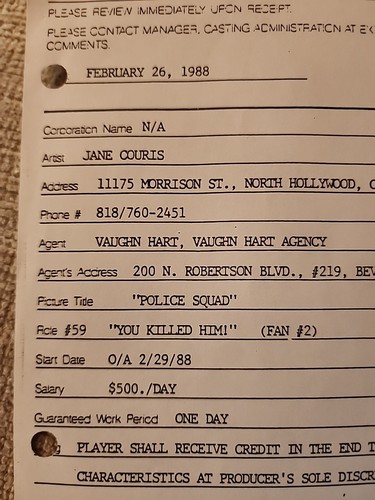 PLEASE REVIEW IMMEDIATELY UPON RECEIPT.
PLEASE CONTACT MANAGER, CASTING ADMINISTRATION AT
COMMENTS.
FEBRUARY 26, 1988
Corporation Name N/A
Artist JANE COURIS
Address 11175 MORRISON ST., NORTH HOLLYWOOD,
Phone # 818/760-2451
Agent VAUGHN HART, VAUGHN HART AGENCY
Agent's Address 200 N. ROBERTSON BLVD., #219, BEV
Picture Title "POLICE SQUAD"
Role #59 "YOU KILLED HIM!" (FAN #2)
Start Date O/A 2/29/88
Salary $500./DAY
Guaranteed Work Period ONE DAY
PLAYER SHALL RECEIVE CREDIT IN THE END T
CHARACTERISTICS AT PRODUCER'S SOLE DISCR